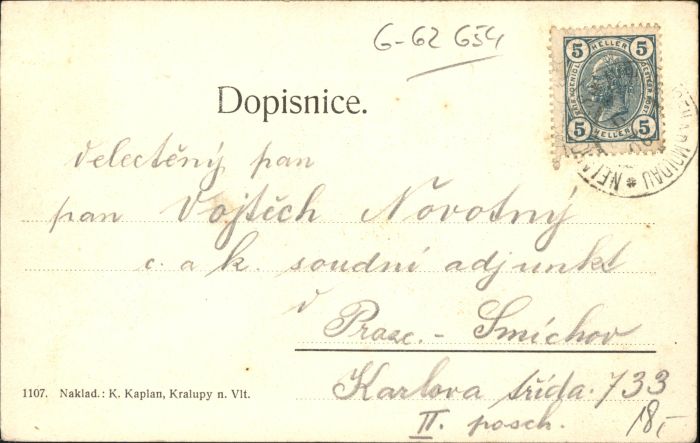 G-62 654
5 HELLER 5
5 HELLER 5
NEL
MOLDAU
Dopisnice.
velectěný pan
pan Vojtěch Novotný
c. a k. soudní adjunkt
v
Praze. - Smíchov
Karlova třída. 733
II. posch.
18,-
1107. Naklad.: K. Kaplan, Kralupy n. Vlt.